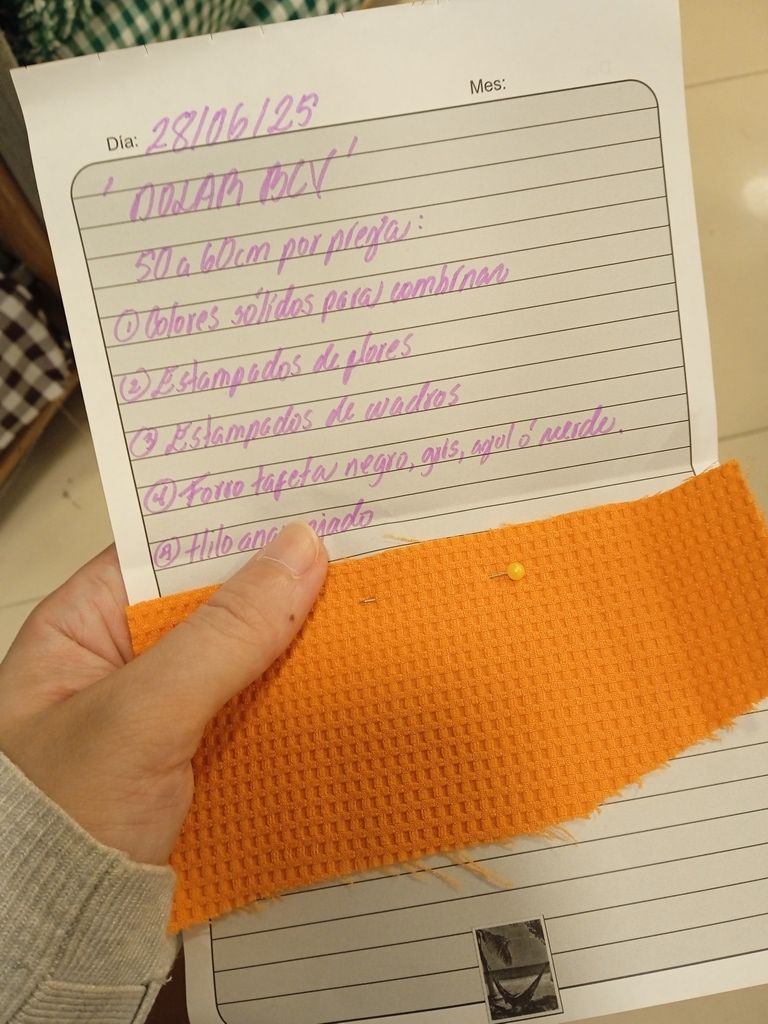 Mes:
Día: 28/06/25
'DOLAR BCV'
50 a 60cm por pieza:
① Colores sólidos para combinar
② Estampados de flores
③ Estampados de cuadros
④ Forro tafeta negro, gris, azul ó verde.
⑤ Hilo